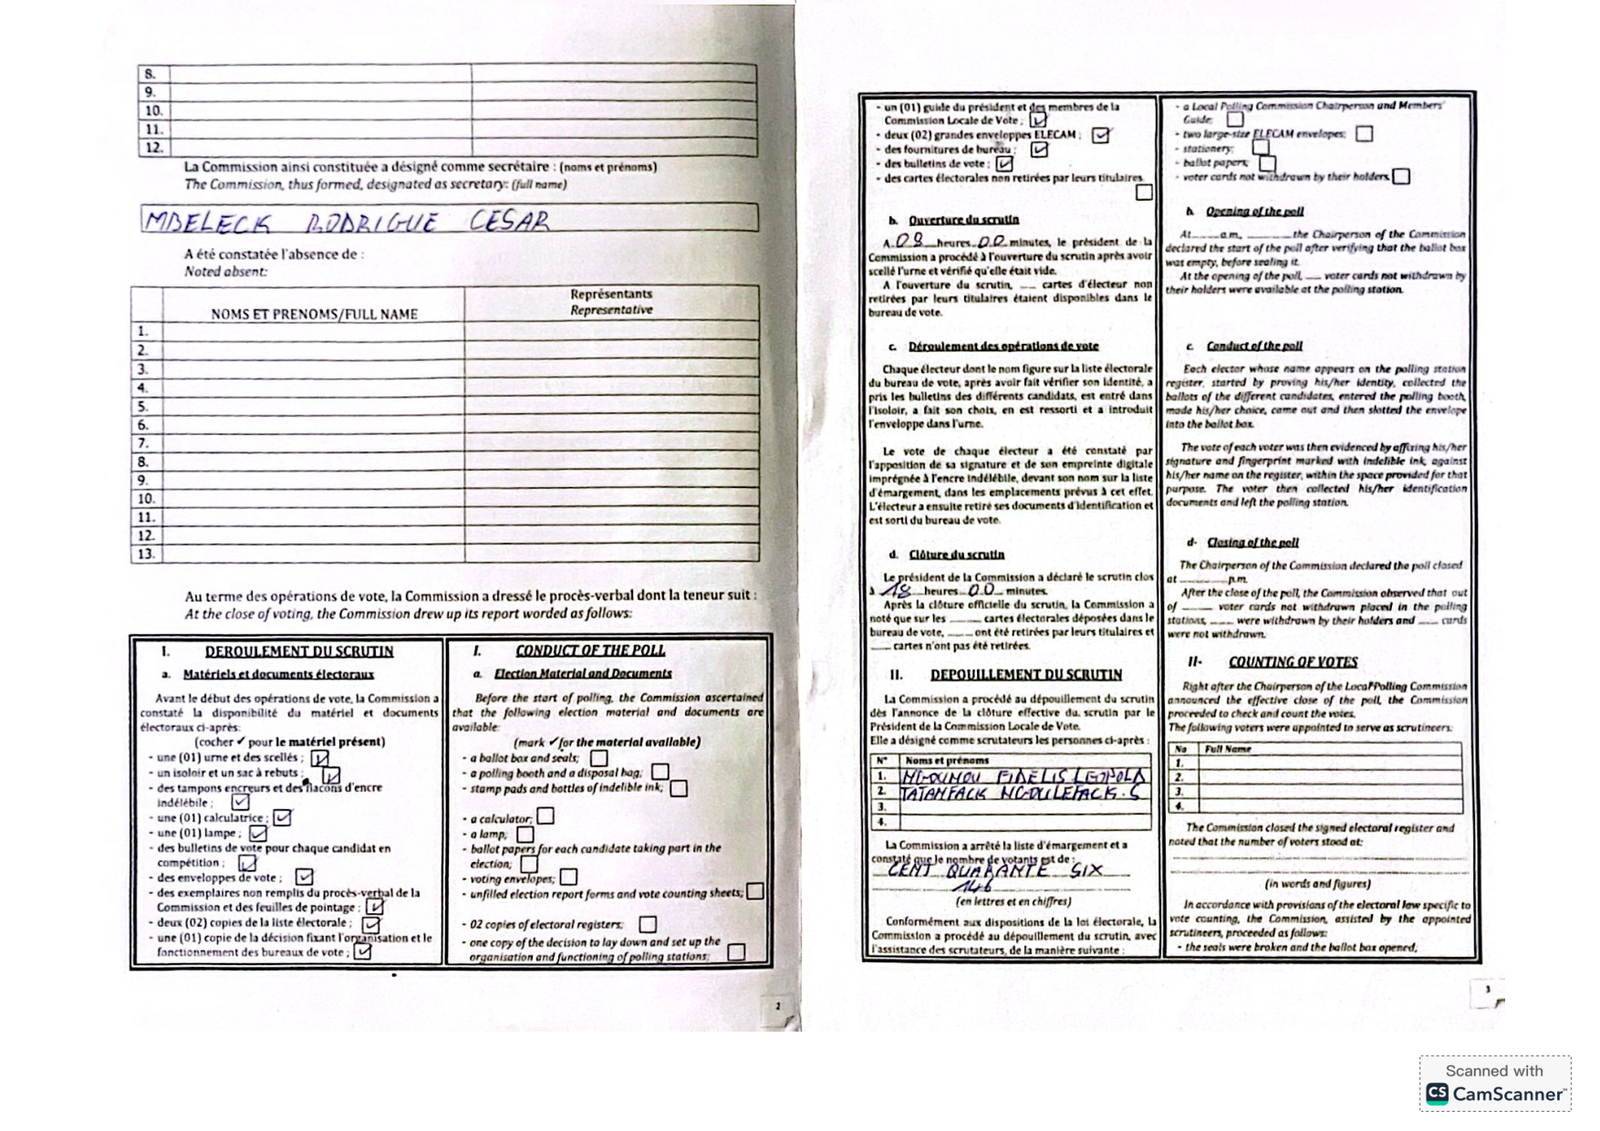 8.
9.
10.
11.
12.
La Commission ainsi constituée a désigné comme secrétaire : (noms et prénoms)
The Commission, thus formed, designated as secretary: (full name)
MBELECK RODRIGUE CESAR
A été constatée l'absence de :
Noted absent:
NOMS ET PRENOMS/FULL NAME
Représentants
Representative
1.
2.
3.
4.
5.
6.
7.
8.
9.
10.
11.
12.
13.
Au terme des opérations de vote, la Commission a dressé le procès-verbal dont la teneur suit :
At the close of voting, the Commission drew up its report worded as follows:
I. DEROULEMENT DU SCRUTIN
a. Matériels et documents électoraux
Avant le début des opérations de vote, la Commission a
constaté la disponibilité du matériel et documents
électoraux ci-après:
(cocher ✓ pour le matériel présent)
- une (01) urne et des scellés ; ☑
- un isoloir et un sac à rebuts ; ☑
- des tampons encreurs et des flacons d'encre
indélébile ; ☑
- une (01) calculatrice ; ☑
- une (01) lampe ; ☑
- des bulletins de vote pour chaque candidat en
compétition ; ☑
- des enveloppes de vote ; ☑
- des exemplaires non remplis du procès-verbal de la
Commission et des feuilles de pointage ; ☑
- deux (02) copies de la liste électorale ; ☑
- une (01) copie de la décision fixant l'organisation et le
fonctionnement des bureaux de vote ; ☑
I. CONDUCT OF THE POLL
a. Election Material and Documents
Before the start of polling, the Commission ascertained
that the following election material and documents are
available:
(mark ✓ for the material available)
- a ballot box and seals; ☐
- a polling booth and a disposal bag; ☐
- stamp pads and bottles of indelible ink; ☐
- a calculator; ☐
- a lamp; ☐
- ballot papers for each candidate taking part in the
election; ☐
- voting envelopes; ☐
- unfilled election report forms and vote counting sheets; ☐
- 02 copies of electoral registers; ☐
- one copy of the decision to lay down and set up the
organisation and functioning of polling stations; ☐
2
- un (01) guide du président et des membres de la
Commission Locale de Vote ; ☑
- deux (02) grandes enveloppes ELECAM ; ☑
- des fournitures de bureau ; ☑
- des bulletins de vote ; ☑
- des cartes électorales non retirées par leurs titulaires
☐
b. Ouverture du scrutin
A 08 heures 00 minutes, le président de la
Commission a procédé à l'ouverture du scrutin après avoir
scellé l'urne et vérifié qu'elle était vide.
A l'ouverture du scrutin, ___ cartes d'électeur non
retirées par leurs titulaires étaient disponibles dans le
bureau de vote.
c. Déroulement des opérations de vote
Chaque électeur dont le nom figure sur la liste électorale
du bureau de vote, après avoir fait vérifier son identité, a
pris les bulletins des différents candidats, est entré dans
l'isoloir, a fait son choix, en est ressorti et a introduit
l'enveloppe dans l'urne.
Le vote de chaque électeur a été constaté par
l'apposition de sa signature et de son empreinte digitale
imprégnée à l'encre indélébile, devant son nom sur la liste
d'émargement, dans les emplacements prévus à cet effet.
L'électeur a ensuite retiré ses documents d'identification et
est sorti du bureau de vote.
d. Clôture du scrutin
Le président de la Commission a déclaré le scrutin clos
à 18 heures 00 minutes.
Après la clôture officielle du scrutin, la Commission a
noté que sur les ______ cartes électorales déposées dans le
bureau de vote, ____ ont été retirées par leurs titulaires et
____ cartes n'ont pas été retirées.
II. DEPOUILLEMENT DU SCRUTIN
La Commission a procédé au dépouillement du scrutin
dès l'annonce de la clôture effective du scrutin par le
Président de la Commission Locale de Vote.
Elle a désigné comme scrutateurs les personnes ci-après :
N° Noms et prénoms
1. NGOUMOU FIDELIS LEOPOLD
2. TATAMFACK NGOULEFACK.S
3.
4.
La Commission a arrêté la liste d'émargement et a
constaté que le nombre de votants est de :
CENT QUARANTE SIX
146
(en lettres et en chiffres)
Conformément aux dispositions de la loi électorale, la
Commission a procédé au dépouillement du scrutin, avec
l'assistance des scrutateurs, de la manière suivante :
- a Local Polling Commission Chairperson and Members'
Guide; ☐
- two large-size ELECAM envelopes; ☐
- stationery; ☐
- ballot papers; ☐
- voter cards not withdrawn by their holders ☐
b. Opening of the poll
At____a.m, ______the Chairperson of the Commission
declared the start of the poll after verifying that the ballot box
was empty, before sealing it.
At the opening of the poll, ___ voter cards not withdrawn by
their holders were available at the polling station.
c. Conduct of the poll
Each elector whose name appears on the polling station
register, started by proving his/her identity, collected the
ballots of the different candidates, entered the polling booth,
made his/her choice, came out and then slotted the envelope
into the ballot box.
The vote of each voter was then evidenced by affixing his/her
signature and fingerprint marked with indelible ink, against
his/her name on the register, within the space provided for that
purpose. The voter then collected his/her identification
documents and left the polling station.
d- Closing of the poll
The Chairperson of the Commission declared the poll closed
at ________p.m.
After the close of the poll, the Commission observed that out
of _____ voter cards not withdrawn placed in the polling
stations, ____ were withdrawn by their holders and ____ cards
were not withdrawn.
II- COUNTING OF VOTES
Right after the Chairperson of the Local Polling Commission
announced the effective close of the poll, the Commission
proceeded to check and count the votes.
The following voters were appointed to serve as scrutineers:
No Full Name
1.
2.
3.
4.
The Commission closed the signed electoral register and
noted that the number of voters stood at:
(in words and figures)
In accordance with provisions of the electoral law specific to
vote counting, the Commission, assisted by the appointed
scrutineers, proceeded as follows:
- the seals were broken and the ballot box opened;
3
Scanned with
CS CamScanner